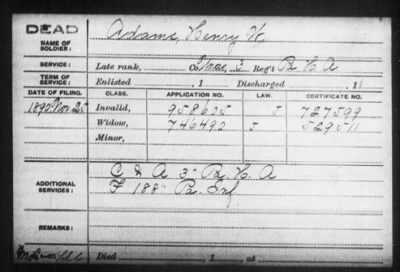 DEAD
NAME OF SOLDIER: Adams, Henry W.
SERVICE: Late rank, Co. 3 Reg't H. A
TERM OF SERVICE: Enlisted , 1 Discharged , 1
DATE OF FILING. CLASS. APPLICATION NO. LAW. CERTIFICATE NO.
1890 Nov. 25 Invalid, 958625 J 727599
Widow, 746492 J 529511
Minor,
ADDITIONAL SERVICES: C & A 3" H. A
F 188" Inf
REMARKS:
Died , 1 , at